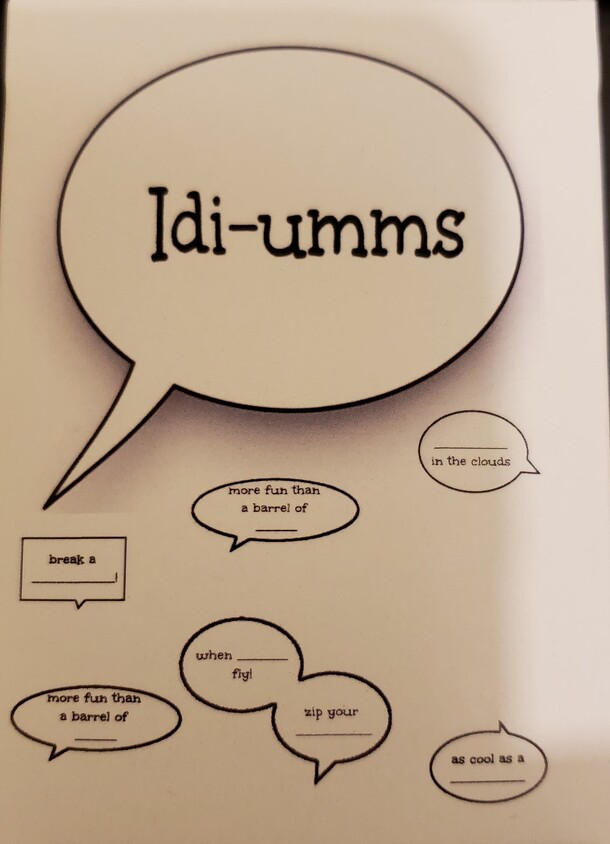 Idi-umms
_____
in the clouds
more fun than
a barrel of
_____
break a
_____!
when _____
fly!
zip your
_____
more fun than
a barrel of
_____
as cool as a
_____